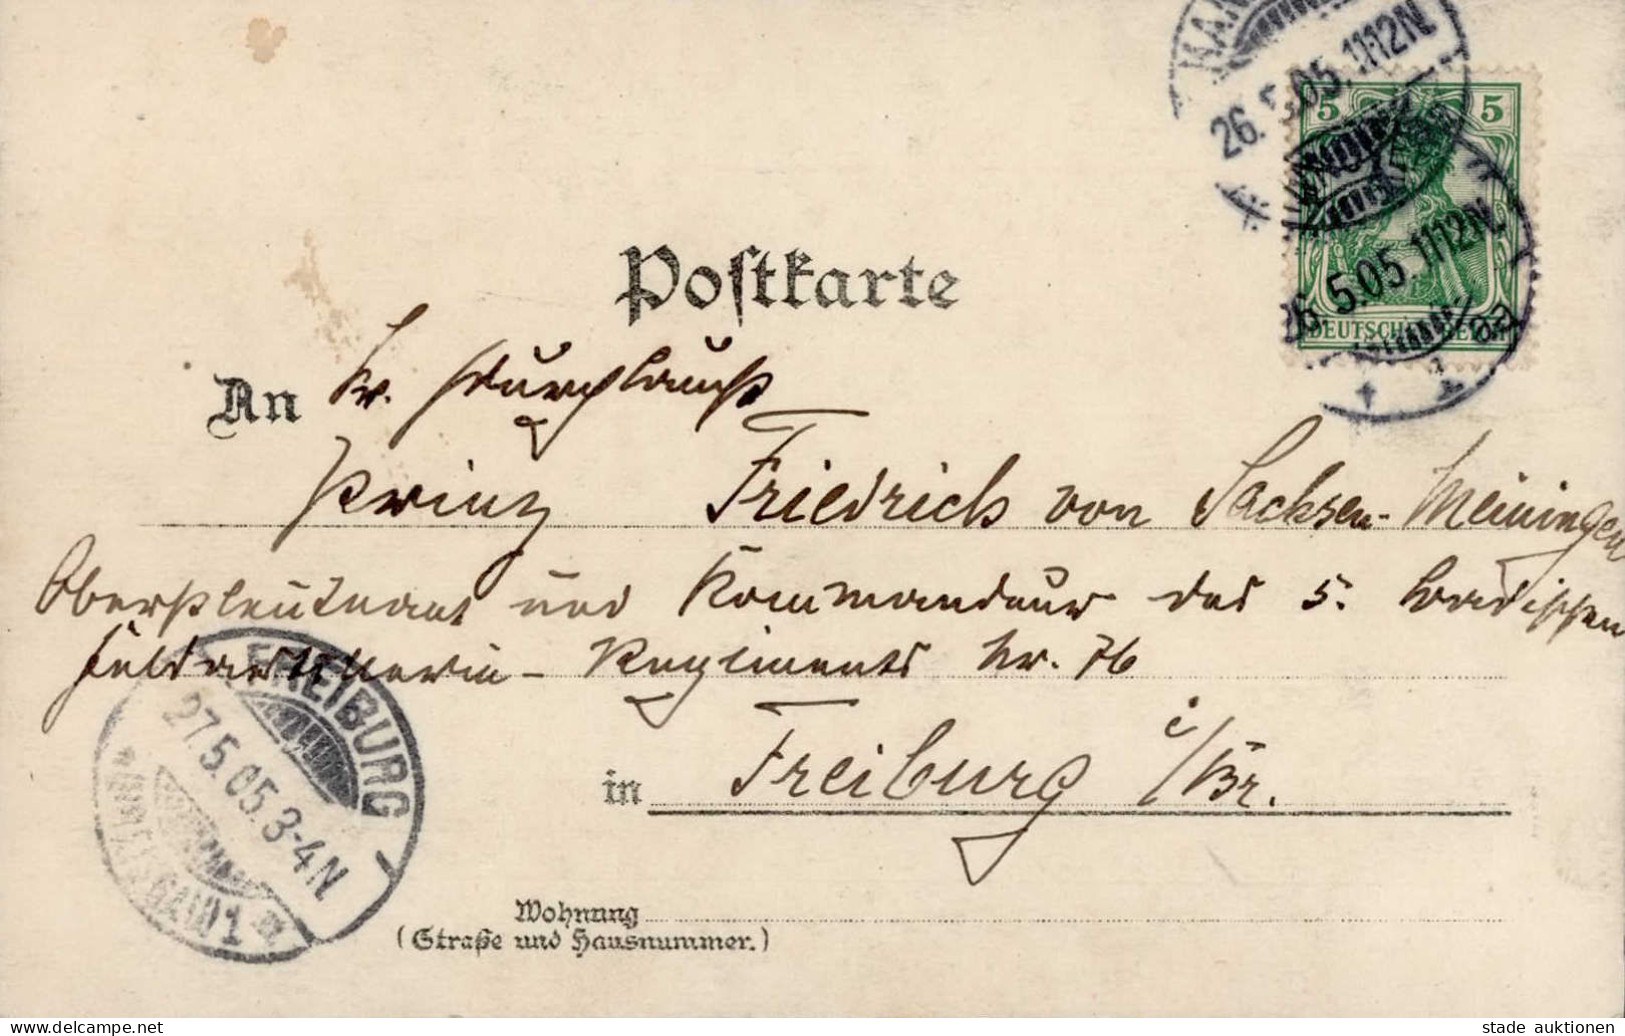 HANNOVER
26.5.05.11-12N.
5 5
HANNOVER
26.5.05.11-12N.
DEUTSCHES REICH
Postkarte
An Sr. Durchlaucht
Prinz Friedrich von Sachsen-Meiningen
Oberstleutnant und Kommandeur des 5. Badischen
Feldartillerie-Regiments Nr. 76
FREIBURG
27.5.05.3-4N
(BREISGAU) 1
in Freiburg i/Br.
Wohnung
(Straße und Hausnummer.)
www.delcampe.net
stade auktionen